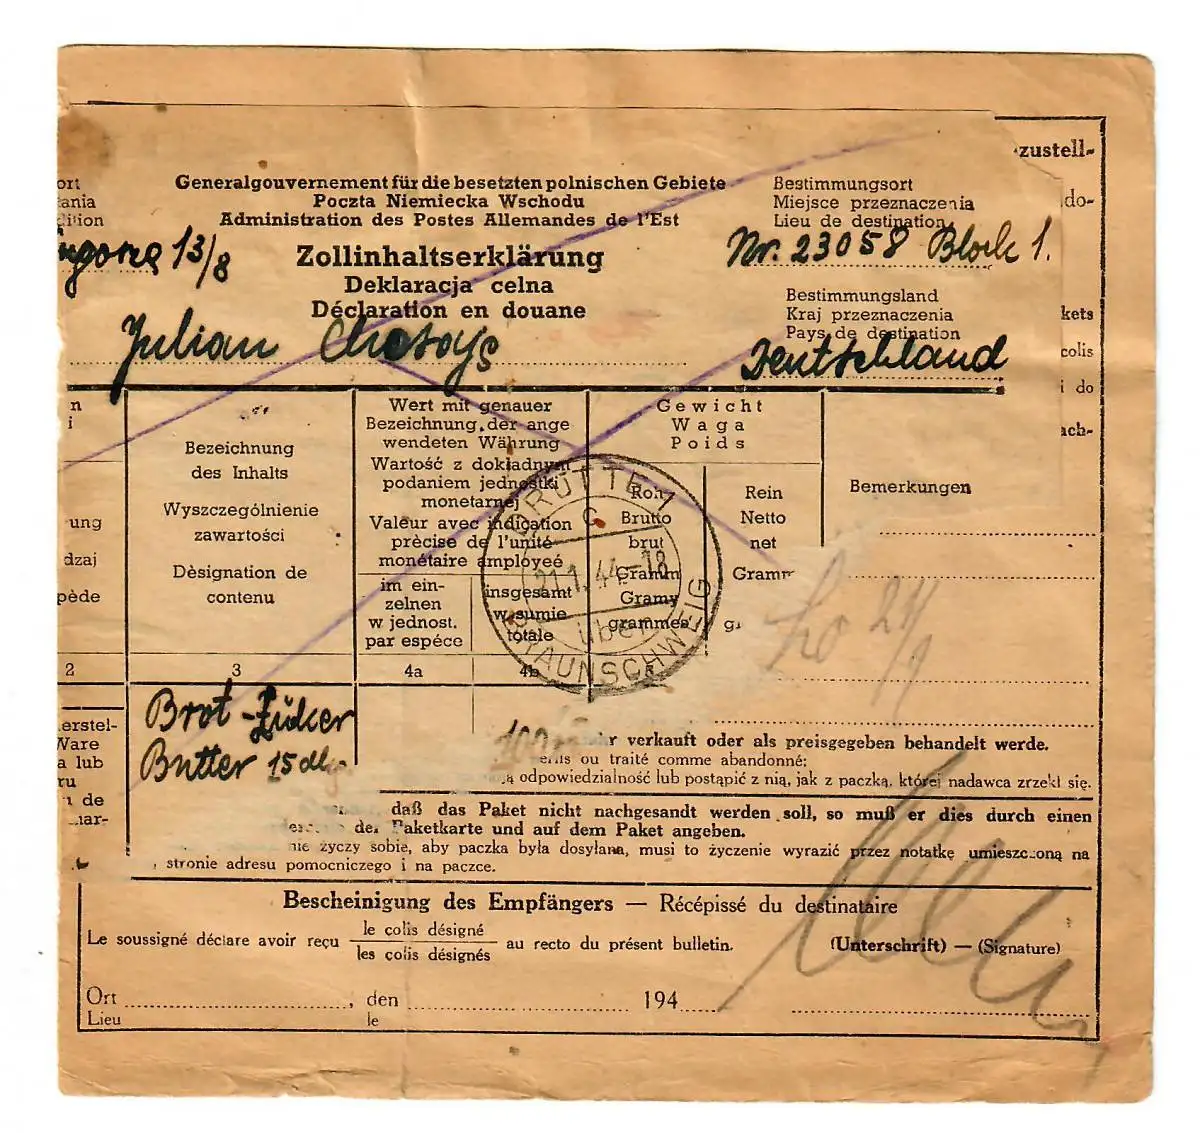 zustell-
ort
ania
dition
Generalgouvernement für die besetzten polnischen Gebiete
Poczta Niemiecka Wschodu
Administration des Postes Allemandes de l'Est
Bestimmungsort
Miejsce przeznaczenia
Lieu de destination
do-
13/8
Nr. 23058 Block 1.
Zollinhaltserklärung
Deklaracja celna
Déclaration en douane
Bestimmungsland
Kraj przeznaczenia
Pays de destination
kets
colis
i do
ach-
Julian
Deutschland
n
i
ung
dzaj
pède
Bezeichnung
des Inhalts
Wyszczególnienie
zawartości
Dèsignation de
contenu
Wert mit genauer
Bezeichnung der ange
wendeten Währung
Wartość z dokładnym
podaniem jednostki
monetarnej
Valeur avec indication
prècise de l'unité
monétaire employeé
im ein-
zelnen
w jednost.
par espéce
insgesamt
w sumie
totale
Gewicht
Waga
Poids
Roh
Brutto
brut
Gramm
Gramy
grammes
Rein
Netto
net
Gramm
Bemerkungen
DRÜTTE 1
c
21.1.44.-18
über
BRAUNSCHWEIG
2
3
4a
4b
Brot - Zucker
Butter 15
erstel-
Ware
a lub
ru
de
mar-
verkauft oder als preisgegeben behandelt werde.
ou traité comme abandonné:
odpowiedzialność lub postąpić z nią, jak z paczką, której nadawca zrzekł się.
daß das Paket nicht nachgesandt werden soll, so muß er dies durch einen
der Paketkarte und auf dem Paket angeben.
nie życzy sobie, aby paczka była dosyłana, musi to życzenie wyrazić przez notatkę umieszczoną na
stronie adresu pomocniczego i na paczce.
Bescheinigung des Empfängers — Récépissé du destinataire
Le soussigné déclare avoir reçu le colis désigné
les colis désignés
au recto du présent bulletin.
(Unterschrift) — (Signature)
Ort ........, den ........ 194 ....
Lieu le